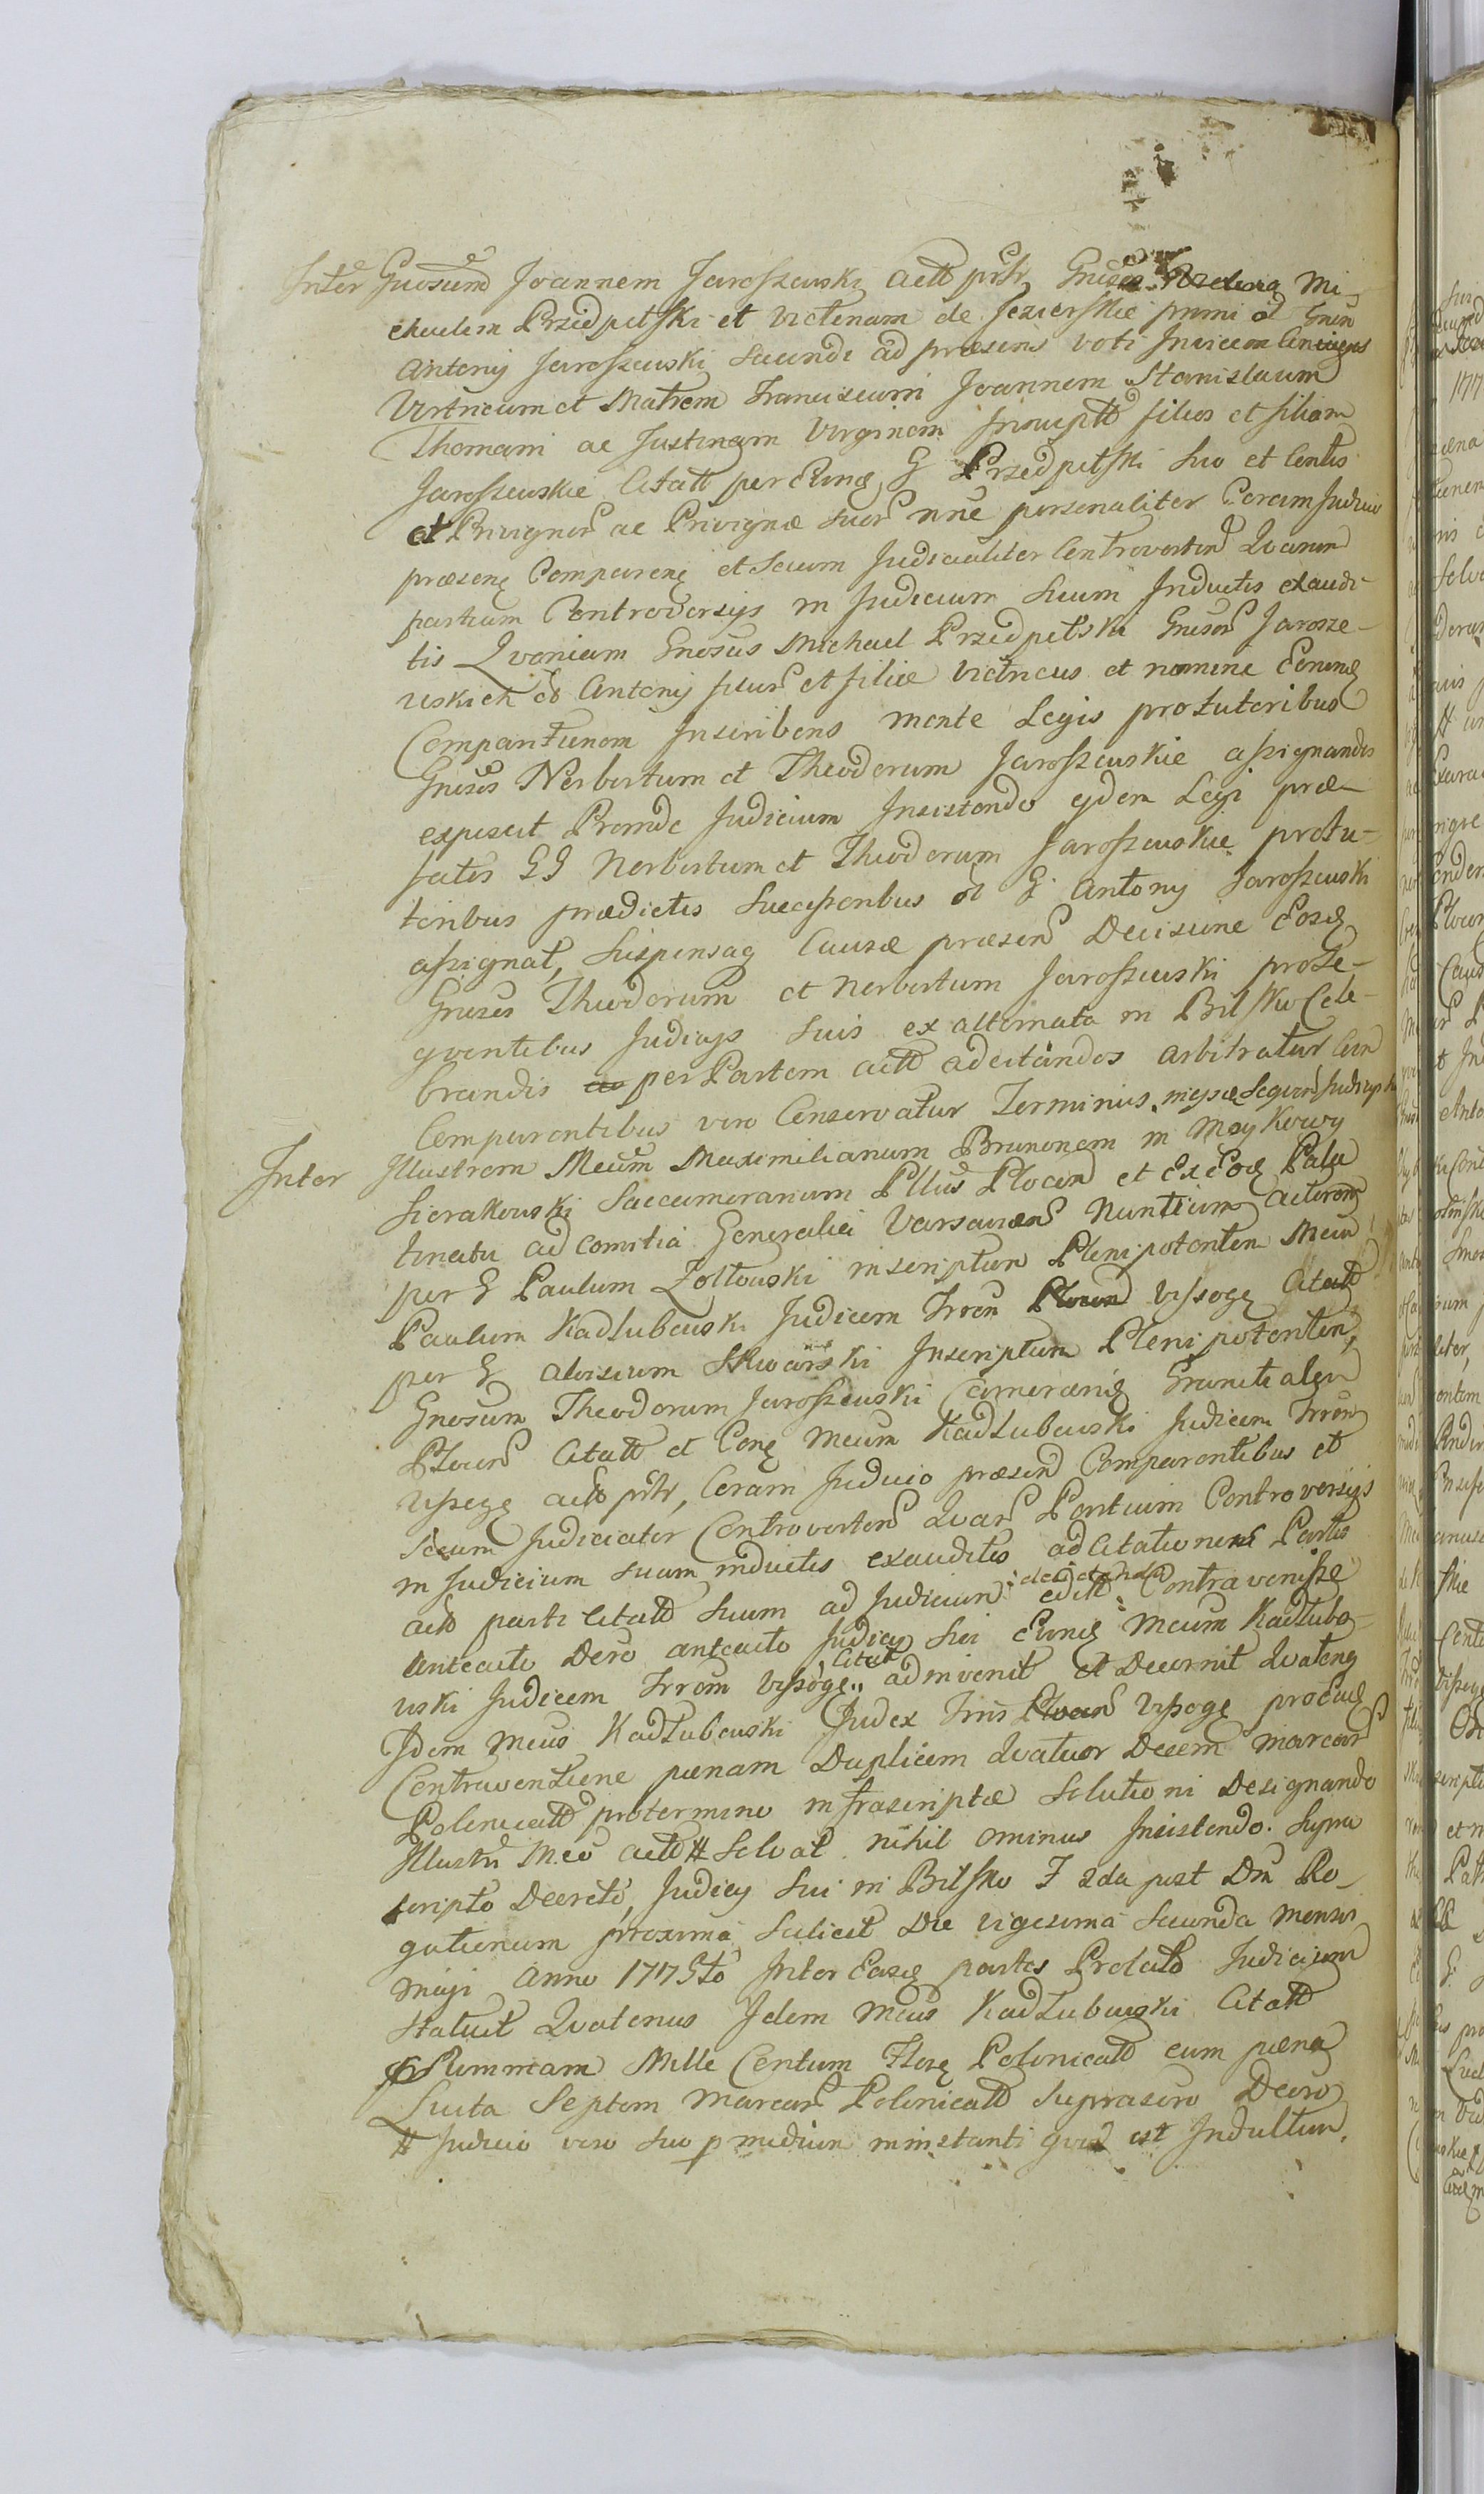 Inter Gnosum Joannem Jaroszewski actt prtr Gnosos Mi-
chaelem Przedpełski et Victenam de Jezierskie primi ol Gnen
Antonij Jaroszewski secundi ad præsens voti Invicem Coniuges
Vitricum et Matrem Franciscum Joannem Stanislaum
Thomam ac Justinam Virginem Innuptt filios et filiam
Jaroszewskie Citatt per Eund G Przedpełski suo et Contis
et Privignor ac Privignæ suor nne personaliter Coram Judicio
præsens Comparens et secum Judicialiter Controverten Quarum
partium Controversijs in Judicium suum Inductis exaudi-
tis Quoniam Gnosus Michael Przedpełski Gnosor Jarosze-
wskich ol Antonij filior et filiæ Victricus et nomine Eorund
Comparitionem Inscribens mente Legis protutoribus
Gnosos Norbertum et Theodorum Jaroszewskie assignandos
exposcit Proinde Judicium Insistendo ejdem Legi præ-
fatos GG Norbertum et Theodorum Jaroszewskie protu-
toribus prædictis Successoribus ol G Antonij Jaroszewski
assignat, Suspensaq Causæ præsen Decisione Eosd
Gnosos Theodorum et Norbertum Jaroszewski pro Se-
quentibus Judicijs suis ex alternata in Bilsko Cele-
brandis per Partem actt adcitandos arbitratur Cum
Comparentibus vero Conservatur Terminus in ijsdē Sequen Judicijs
Inter Illustrem Mcum Maximilianum Brunonem in Moykowy
Sierakowski Succamerarium Pllius Plocen et Ex Eod Pala
tinatu ad Comitia Generalia Varsavien Nuntium actorem
per G Paulum Zołtowski inscriptum Plenipotenten Mcum
Paulum Kadłubowski Judicem Trren Vissoge Citatt
per G Aloisium Skwarski Inscriptum Plenipotenten,
Gnosum Theodorum Jaroszewski Camerarig Granitialem
Plocen Citatt et Cone Mcum Kadłubowski Judicem Trren
Vissoge actt prtr, Coram Judicio præsen Comparentibus et
Secum Judicialiter Controverten Quar Partium Controversijs
in Judicium suum inductis exauditis ad Citationem Partis
actt parti Citatt suum ad Judicium editt Contravenisse
Anteacto Dero anteacto Judicij sui Eund Mcum Kadłubo-
wski Judicem Trrem Vissoge Citatt adinvenit et Decernit Quateng
Idem Mcus Kadłubowski Judex Trris Vissoge pro Ead
Contraventione pœnam Duplicem Quatuor Decem marcar
Polonicatt pro termino infrascriptæ Solutioni Designando
Illustri Mco actt # Solvat. nihil ominus Insistendo Supra
scripto Decreto, Judicij sui in Bilsko F 2da post Dm Ro-
gationum proxima Scilicet Die vigesima secunda mensis
maji Anno 1775to Inter Easd partes Prolato Judicium
statuit Quatenus Idem Mcus Kadłubowski Citatt
Summam Mille Centum Flose Polonicatt cum pœna
Lucta Septem Marcar Polonicatt Suprascro Decro
# Judicio vero suo p mediun instanti quod est Indultum.